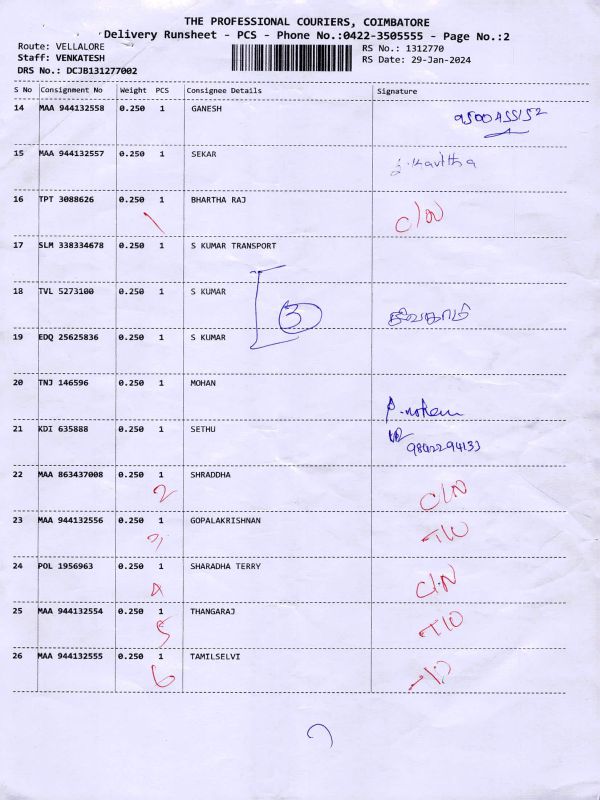 THE PROFESSIONAL COURIERS, COIMBATORE
Delivery Runsheet - PCS - Phone No.:0422-3505555 - Page No.:2
Route: VELLALORE RS No.: 1312770
Staff: VENKATESH RS Date: 29-Jan-2024
DRS No.: DCJB131277002
S No Consignment No Weight PCS Consignee Details Signature
14 MAA 944132558 0.250 1 GANESH
15 MAA 944132557 0.250 1 SEKAR
16 TPT 3088626 0.250 1 BHARTHA RAJ C/N
17 SLM 338334678 0.250 1 S KUMAR TRANSPORT
18 TVL 5273100 0.250 1 S KUMAR
3
19 EDQ 25625836 0.250 1 S KUMAR
20 TNJ 146596 0.250 1 MOHAN
21 KDI 635888 0.250 1 SETHU
9842294133
22 MAA 863437008 0.250 1 SHRADDHA
2 C/N
23 MAA 944132556 0.250 1 GOPALAKRISHNAN
3
24 POL 1956963 0.250 1 SHARADHA TERRY
4 C/N
25 MAA 944132554 0.250 1 THANGARAJ
5
26 MAA 944132555 0.250 1 TAMILSELVI
6